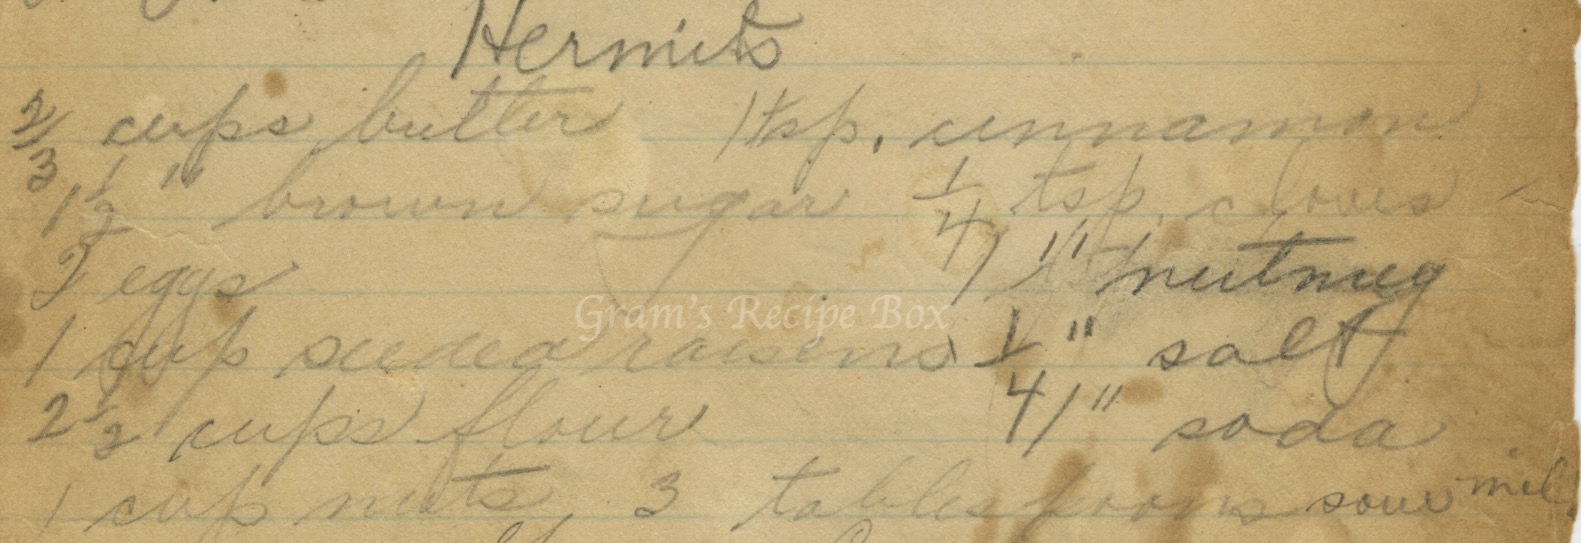 Hermits
2/3 cups butter 1 tsp. cinnamon
1 1/2 " brown sugar 1/4 tsp. cloves
2 eggs 1 " nutmeg
Gram's Recipe Box
1 cup seeded raisens 1/4 " salt
2 1/2 cups flour 1 " soda
1 cup nuts, 3 tablespoons sour milk